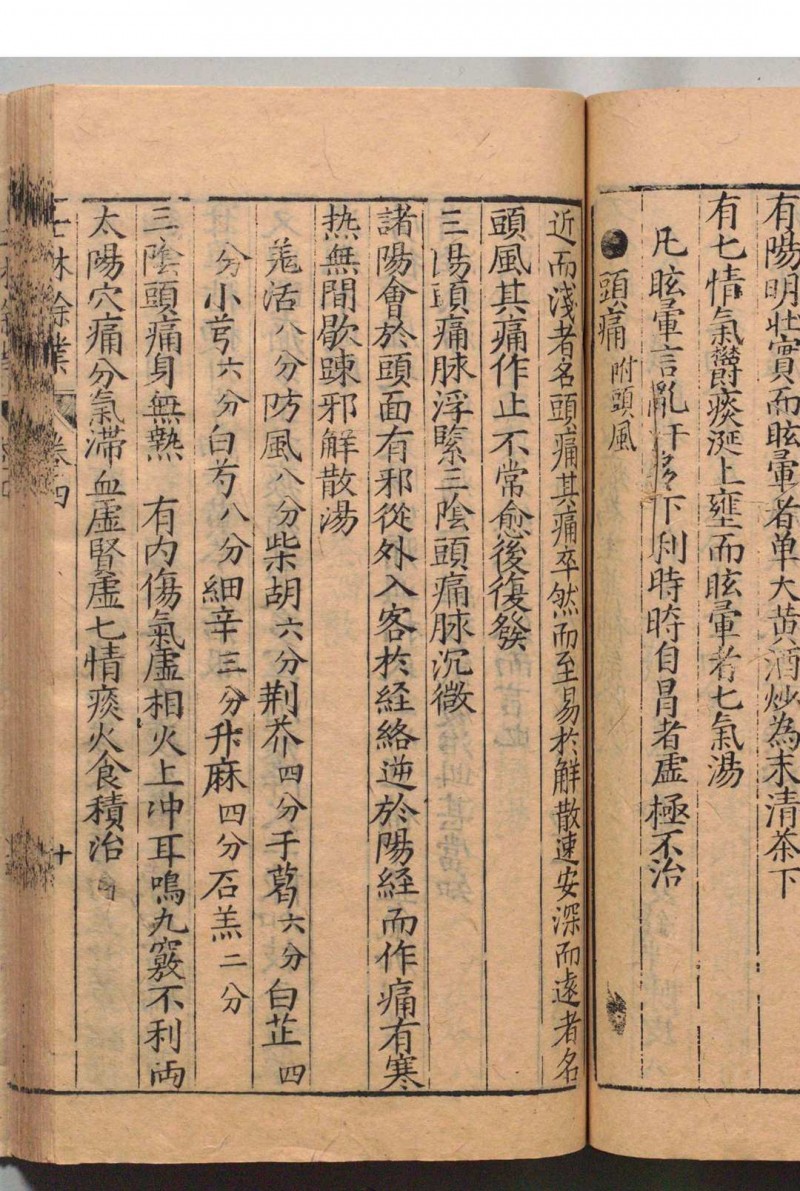 有陽明壯實而眩暈者单大黄酒炒為末清茶下
有七情氣欝痰涎上壅而眩暈者七氣湯
凡眩暈言亂汗多下利時時自冐者虛極不治
●頭痛 附頭風
近而淺者名頭痛其痛卒然而至易於解散速安深而遠者名
頭風其痛作止不常愈後復發
三陽頭痛脉浮緊三陰頭痛脉沉微
諸陽會於頭面有邪從外入客於経絡逆於陽経而作痛有寒
热無間歇踈邪解散湯
羗活八分防風八分柴胡六分荆芥四分干葛六分白芷四
分小芎六分白芍八分細辛三分升麻四分石羔二分
三陰頭痛身無熱 有内傷氣虛相火上冲耳鳴九竅不利两
太陽穴痛分氣滞血虛腎虛七情痰火食積治
士林餘業 卷四 十